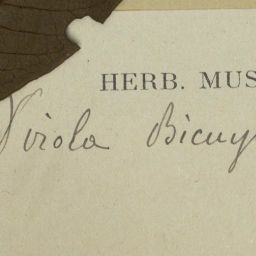 HERB. MUS
Virola Bicuy